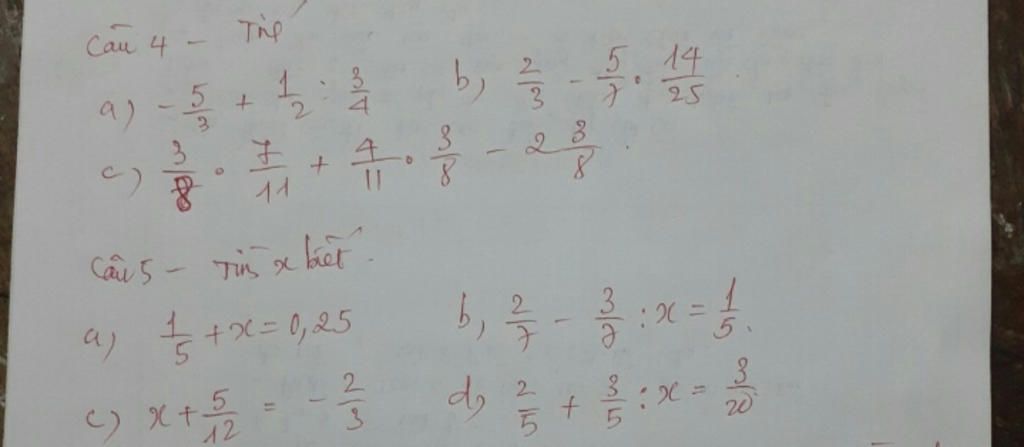 Câu 4 - Tính
a) -5/3 + 1/2 : 3/4 b) 2/3 - 5/7 . 14/25
c) 3/8 . 7/11 + 4/11 . 3/8 - 2 3/8
Câu 5 - Tìm x biết
a) 1/5 + x = 0,25 b) 2/7 - 3/7 : x = 1/5.
c) x + 5/12 = -2/3 d) 2/5 + 3/5 : x = 3/20